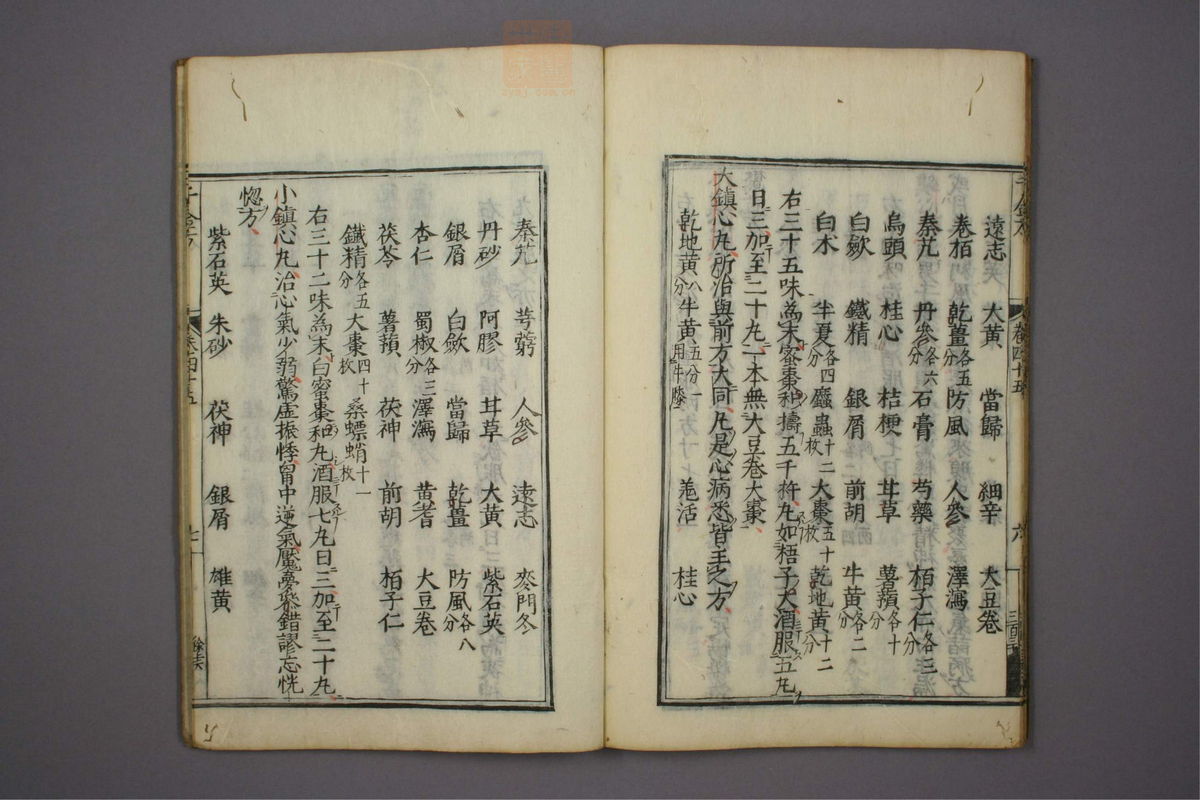 遠志 大黃 當歸 細辛 大豆卷
卷栢 乾薑各五分 防風 人參 澤瀉
秦艽 丹參各六分 石膏 芍藥 栢子仁各三分
烏頭 桂心 桔梗 甘草 薯蕷各十分
白斂 鐵精 銀屑 前胡 牛黃各二分
白朮 半夏各四分 䗪蟲十二枚 大棗五十枚 乾地黃十二分
右三十五味為末蜜棗和擣五千杵丸如梧子大酒服五丸
日三加至二十丸一本無大豆卷大棗
大鎮心丸所治與前方大同凡是心病悉皆主之方
乾地黃八分 牛黃五分一用牛膝 羗活 桂心
秦艽 芎藭 人參 遠志 麥門冬
丹砂 阿膠 甘草 大黃 紫石英
銀屑 白斂 當歸 乾薑 防風各八分
杏仁 蜀椒各三分 澤瀉 黃耆 大豆卷
茯苓 薯蕷 茯神 前胡 栢子仁
鐵精各五分 大棗四十枚 桑螵蛸十一枚
右三十二味為末白蜜棗和丸酒服七丸日三加至二十丸
小鎮心丸治心氣少弱驚虛振悸胷中逆氣魘夢參錯謬忘恍
惚方
紫石英 朱砂 茯神 銀屑 雄黃